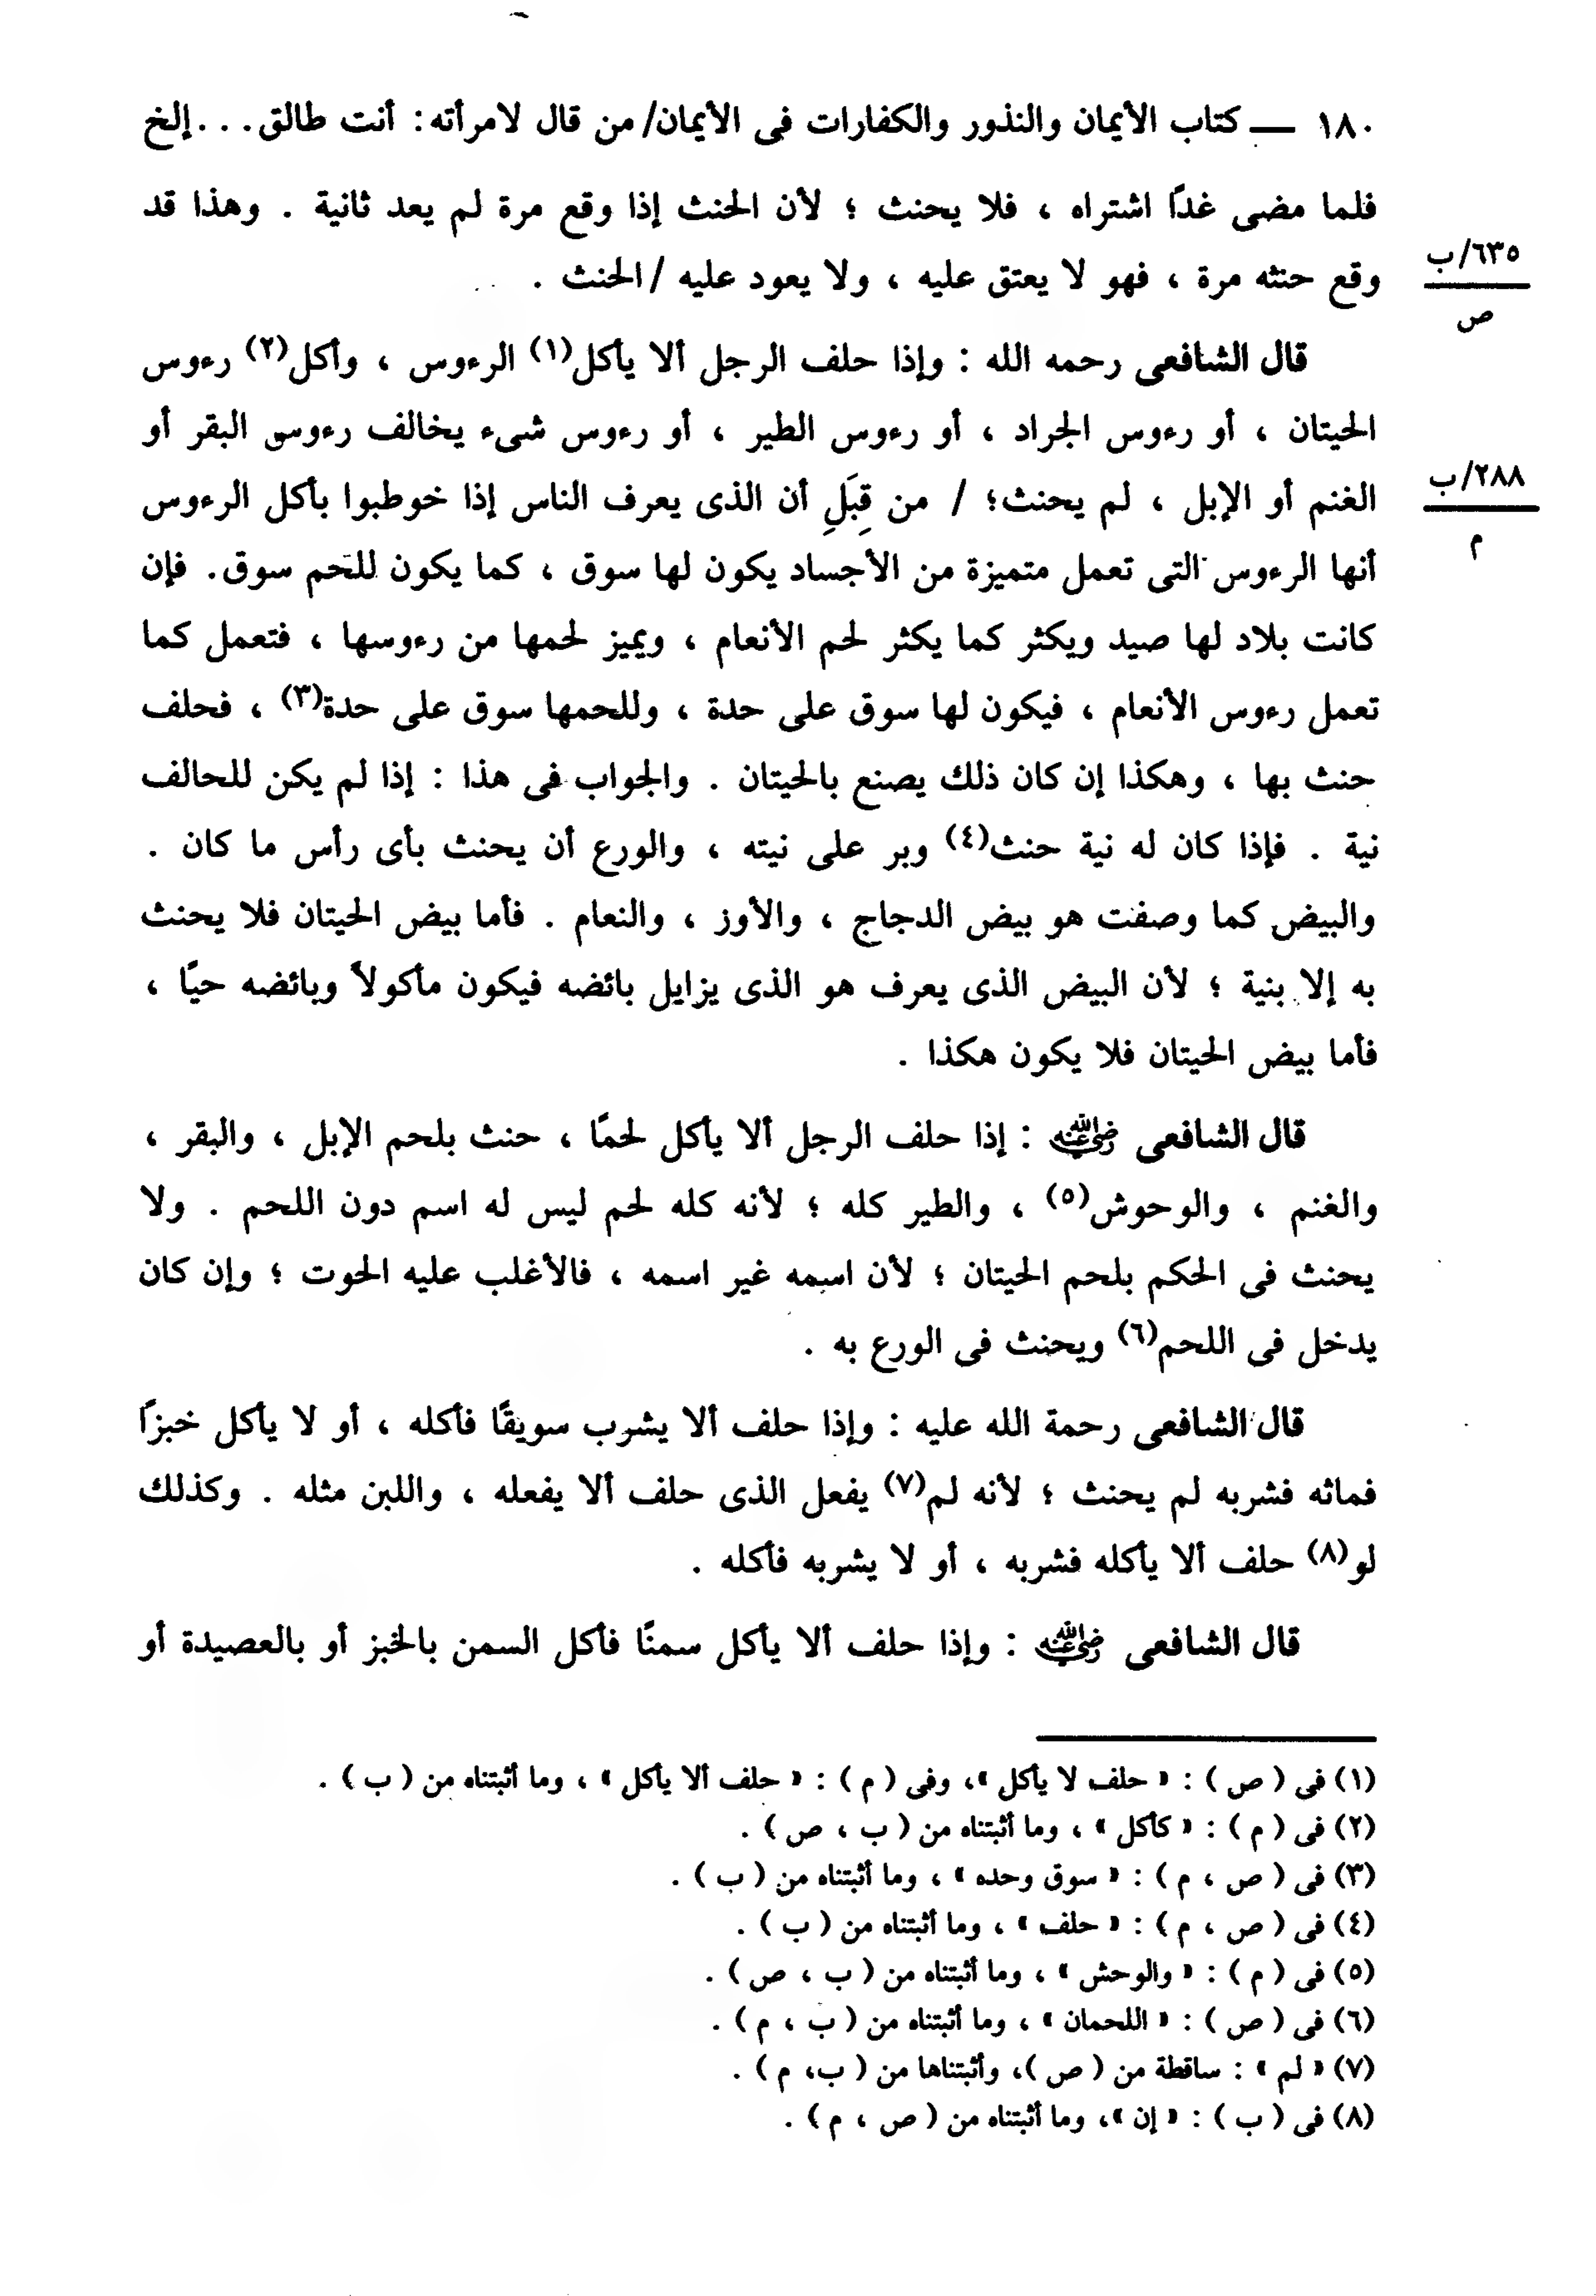 ١٨٠ ــــ كتاب الأيمان والنذور والكفارات فى الأيمان/ من قال لامرأته: أنت طالق. . .إلخ
فلما مضى غدًا اشتراه ، فلا يحنث ؛ لأن الحنث إذا وقع مرة لم يعد ثانية . وهذا قد
وقع حنثه مرة ، فهو لا يعتق عليه ، ولا يعود عليه / الحنث .
٦٣٥/ب
ص
قال الشافعى رحمه الله : وإذا حلف الرجل ألا يأكل(١) الرءوس ، وأكل(٢) رءوس
الحيتان ، أو رءوس الجراد ، أو رءوس الطير ، أو رءوس شىء يخالف رءوس البقر أو
الغنم أو الإبل ، لم يحنث؛ / من قِبَلِ أن الذى يعرف الناس إذا خوطبوا بأكل الرءوس
٢٨٨/ب
م
أنها الرءوس التى تعمل متميزة من الأجساد يكون لها سوق ، كما يكون للحم سوق. فإن
كانت بلاد لها صيد ويكثر كما يكثر لحم الأنعام ، ويميز لحمها من رءوسها ، فتعمل كما
تعمل رءوس الأنعام ، فيكون لها سوق على حدة ، وللحمها سوق على حدة(٣) ، فحلف
حنث بها ، وهكذا إن كان ذلك يصنع بالحيتان . والجواب فى هذا : إذا لم يكن للحالف
نية . فإذا كان له نية حنث(٤) وبر على نيته ، والورع أن يحنث بأى رأس ما كان .
والبيض كما وصفت هو بيض الدجاج ، والأوز ، والنعام . فأما بيض الحيتان فلا يحنث
به إلا بنية ؛ لأن البيض الذى يعرف هو الذى يزايل بائضه فيكون مأكولاً وبائضه حيًا ،
فأما بيض الحيتان فلا يكون هكذا .
قال الشافعى رضي الله عنه : إذا حلف الرجل ألا يأكل لحمًا ، حنث بلحم الإبل ، والبقر ،
والغنم ، والوحوش(٥) ، والطير كله ؛ لأنه كله لحم ليس له اسم دون اللحم . ولا
يحنث فى الحكم بلحم الحيتان ؛ لأن اسمه غير اسمه ، فالأغلب عليه الحوت ؛ وإن كان
يدخل فى اللحم(٦) ويحنث فى الورع به .
قال الشافعى رحمة الله عليه : وإذا حلف ألا يشرب سويقًا فأكله ، أو لا يأكل خبزًا
فماثه فشربه لم يحنث ؛ لأنه لم(٧) يفعل الذى حلف ألا يفعله ، واللبن مثله . وكذلك
لو(٨) حلف ألا يأكله فشربه ، أو لا يشربه فأكله .
قال الشافعى رضي الله عنه : وإذا حلف ألا يأكل سمنًا فأكل السمن بالخبز أو بالعصيدة أو
(١) فى ( ص ) : « حلف لا يأكل »، وفى ( م ) : « حلف ألا يأكل » ، وما أثبتناه من ( ب ) .
(٢) فى ( م ) : « كأكل » ، وما أثبتناه من ( ب ، ص ) .
(٣) فى ( ص ، م ) : « سوق وحده » ، وما أثبتناه من ( ب ) .
(٤) فى ( ص ، م ) : « حلف » ، وما أثبتناه من ( ب ) .
(٥) فى ( م ) : « والوحش » ، وما أثبتناه من ( ب ، ص ) .
(٦) فى ( ص ) : « اللحمان » ، وما أثبتناه من ( ب ، م ) .
(٧) « لم » : ساقطة من ( ص )، وأثبتناها من ( ب، م ) .
(٨) فى ( ب ) : « إن »، وما أثبتناه من ( ص ، م ) .